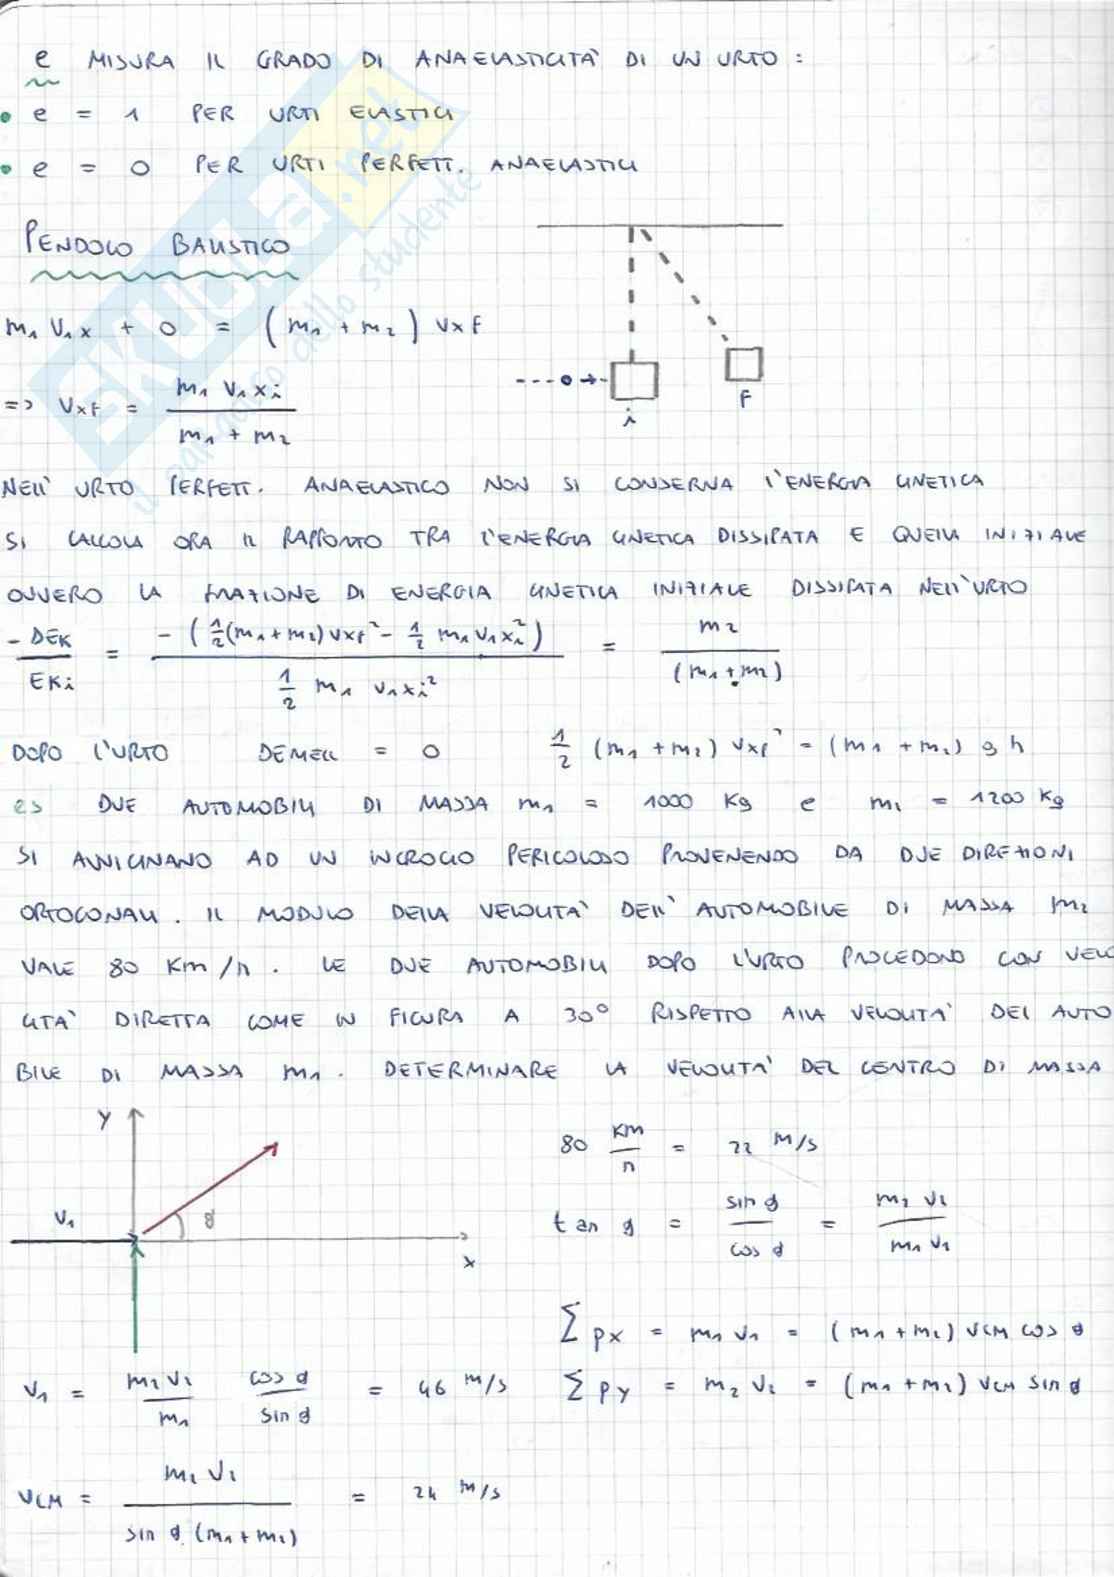 e MISURA IL GRADO DI ANAELASTICITÀ DI UN URTO :
• e = 1 PER URTI ELASTICI
• e = 0 PER URTI PERFETT. ANAELASTICI
PENDOLO BALISTICO
m1 V1x + 0 = (m1 + m2) VxF
=> VxF = m1 V1xi / m1 + m2
i
F
NELL' URTO PERFETT. ANAELASTICO NON SI CONSERVA L'ENERGIA CINETICA
SI CALCOLA ORA IL RAPPORTO TRA L'ENERGIA CINETICA DISSIPATA E QUELLA INIZIALE
OVVERO LA FRAZIONE DI ENERGIA CINETICA INIZIALE DISSIPATA NELL'URTO
- DEK / EKi = - (1/2 (m1+m2) VxF² - 1/2 m1 V1xi²) / 1/2 m1 V1xi² = m2 / (m1+m2)
DOPO L'URTO DEMECC = 0 1/2 (m1 + m2) VxF² = (m1 + m2) g h
es DUE AUTOMOBILI DI MASSA m1 = 1000 Kg e m2 = 1200 Kg
SI AVVICINANO AD UN INCROCIO PERICOLOSO PROVENENDO DA DUE DIREZIONI
ORTOGONALI. IL MODULO DELLA VELOCITA' DELL' AUTOMOBILE DI MASSA m2
VALE 80 Km/h. LE DUE AUTOMOBILI DOPO L'URTO PROCEDONO CON VELO
CITA' DIRETTA COME IN FIGURA A 30° RISPETTO ALLA VELOCITA' DEL AUTO
BILE DI MASSA m1. DETERMINARE LA VELOCITA' DEL CENTRO DI MASSA
y
V1
θ
x
80 Km/h = 22 m/s
tan θ = sin θ / cos θ = m2 V2 / m1 V1
Σ px = m1 V1 = (m1 + m2) VCM cos θ
V1 = m2 V2 / m1 cos θ / sin θ = 46 m/s
Σ py = m2 V2 = (m1 + m2) VCM sin θ
VCM = m2 V2 / sin θ (m1 + m2) = 24 m/s
SKUOLA.net
il paradiso dello studente